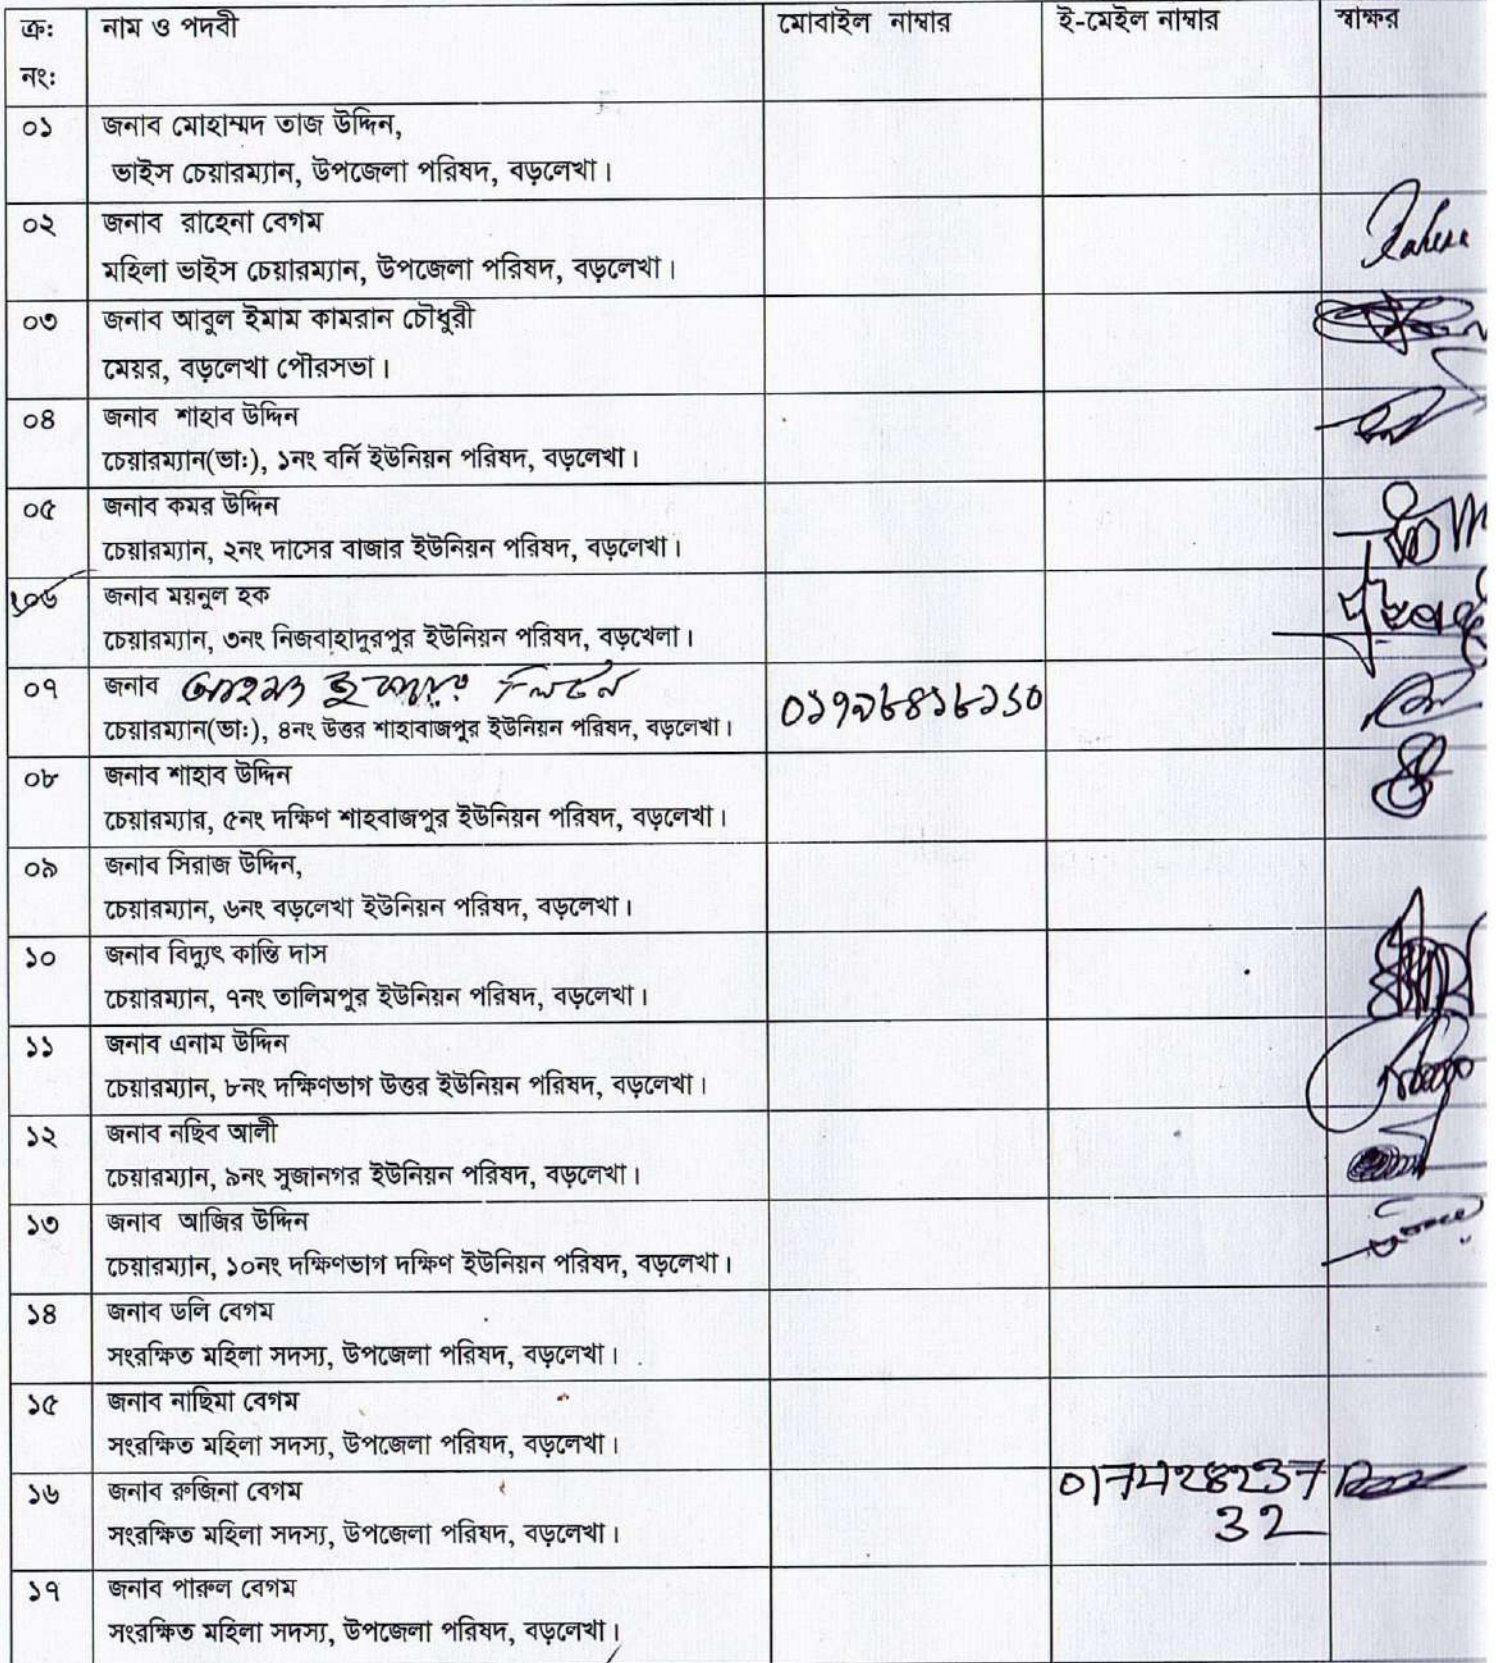 ক্র: নাম ও পদবী মোবাইল নাম্বার ই-মেইল নাম্বার স্বাক্ষর
নং:
০১ জনাব মোহাম্মদ তাজ উদ্দিন,
ভাইস চেয়ারম্যান, উপজেলা পরিষদ, বড়লেখা।
০২ জনাব রাহেনা বেগম
মহিলা ভাইস চেয়ারম্যান, উপজেলা পরিষদ, বড়লেখা।
০৩ জনাব আবুল ইমাম কামরান চৌধুরী
মেয়র, বড়লেখা পৌরসভা।
০৪ জনাব শাহাব উদ্দিন
চেয়ারম্যান(ভা:), ১নং বর্নি ইউনিয়ন পরিষদ, বড়লেখা।
০৫ জনাব কমর উদ্দিন
চেয়ারম্যান, ২নং দাসের বাজার ইউনিয়ন পরিষদ, বড়লেখা।
০৬ জনাব ময়নুল হক
চেয়ারম্যান, ৩নং নিজবাহাদুরপুর ইউনিয়ন পরিষদ, বড়খেলা।
০৭ জনাব
চেয়ারম্যান(ভা:), ৪নং উত্তর শাহাবাজপুর ইউনিয়ন পরিষদ, বড়লেখা।
০৮ জনাব শাহাব উদ্দিন
চেয়ারম্যার, ৫নং দক্ষিণ শাহবাজপুর ইউনিয়ন পরিষদ, বড়লেখা।
০৯ জনাব সিরাজ উদ্দিন,
চেয়ারম্যান, ৬নং বড়লেখা ইউনিয়ন পরিষদ, বড়লেখা।
১০ জনাব বিদ্যুৎ কান্তি দাস
চেয়ারম্যান, ৭নং তালিমপুর ইউনিয়ন পরিষদ, বড়লেখা।
১১ জনাব এনাম উদ্দিন
চেয়ারম্যান, ৮নং দক্ষিণভাগ উত্তর ইউনিয়ন পরিষদ, বড়লেখা।
১২ জনাব নছিব আলী
চেয়ারম্যান, ৯নং সুজানগর ইউনিয়ন পরিষদ, বড়লেখা।
১৩ জনাব আজির উদ্দিন
চেয়ারম্যান, ১০নং দক্ষিণভাগ দক্ষিণ ইউনিয়ন পরিষদ, বড়লেখা।
১৪ জনাব ডলি বেগম
সংরক্ষিত মহিলা সদস্য, উপজেলা পরিষদ, বড়লেখা।
১৫ জনাব নাছিমা বেগম
সংরক্ষিত মহিলা সদস্য, উপজেলা পরিষদ, বড়লেখা।
১৬ জনাব রুজিনা বেগম 017428237
সংরক্ষিত মহিলা সদস্য, উপজেলা পরিষদ, বড়লেখা। 32
১৭ জনাব পারুল বেগম
সংরক্ষিত মহিলা সদস্য, উপজেলা পরিষদ, বড়লেখা।